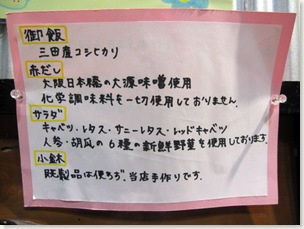 御飯
三田産コシヒカリ
赤だし
大阪日本橋の大源味噌使用
化学調味料を一切使用しておりません。
サラダ
キャベツ・レタス・サニーレタス・レッドキャベツ
人参・胡瓜の6種の新鮮野菜を使用しております。
小鉢
既製品は使わず、当店手作りです。